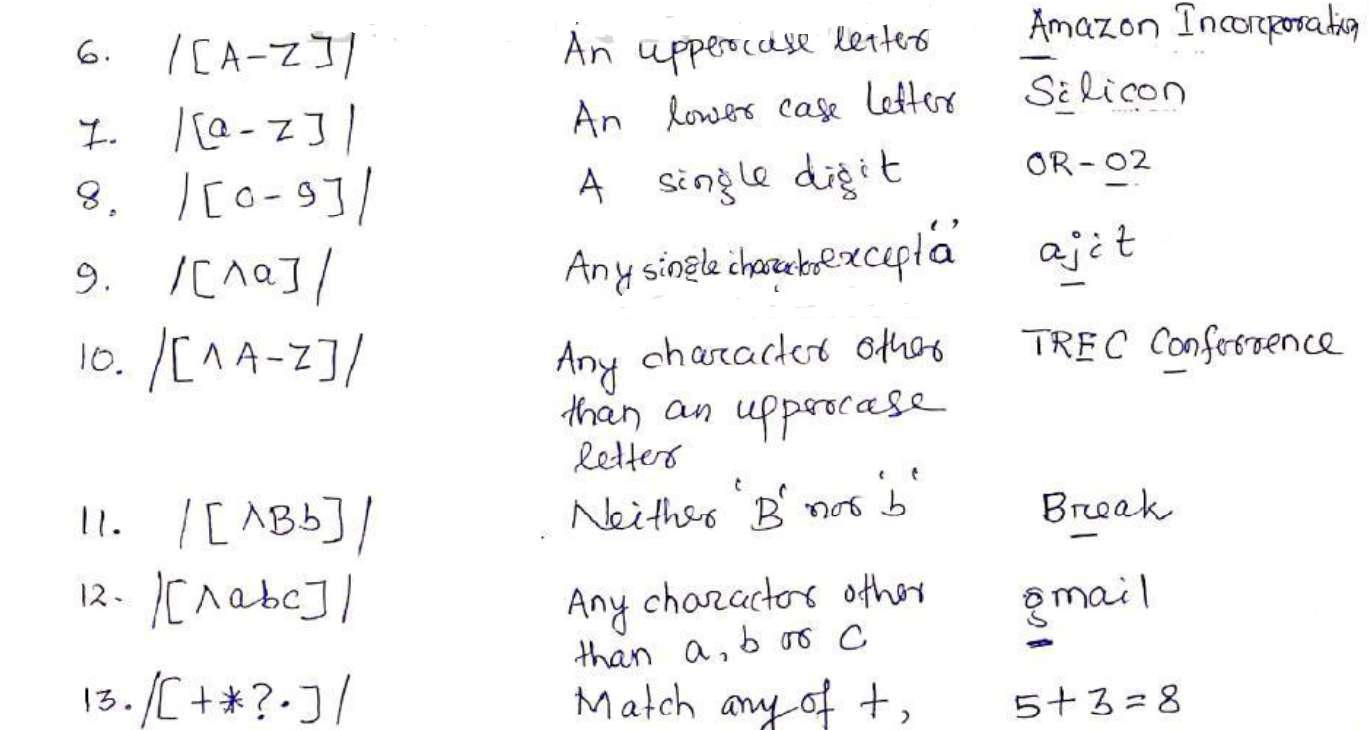 6. /[A-Z]/ An uppercase letter Amazon Incorporation
7. /[a-z]/ An lower case letter Silicon
8. /[0-9]/ A single digit OR-02
9. /[^a]/ Any single character except 'a' ajit
10. /[^A-Z]/ Any character other TREC Conferrence
than an uppercase
letter
11. /[^Bb]/ Neither 'B' nor 'b' Break
12. /[^abc]/ Any character other gmail
than a, b or c
13. /[+*?.]/ Match any of +, 5+3=8